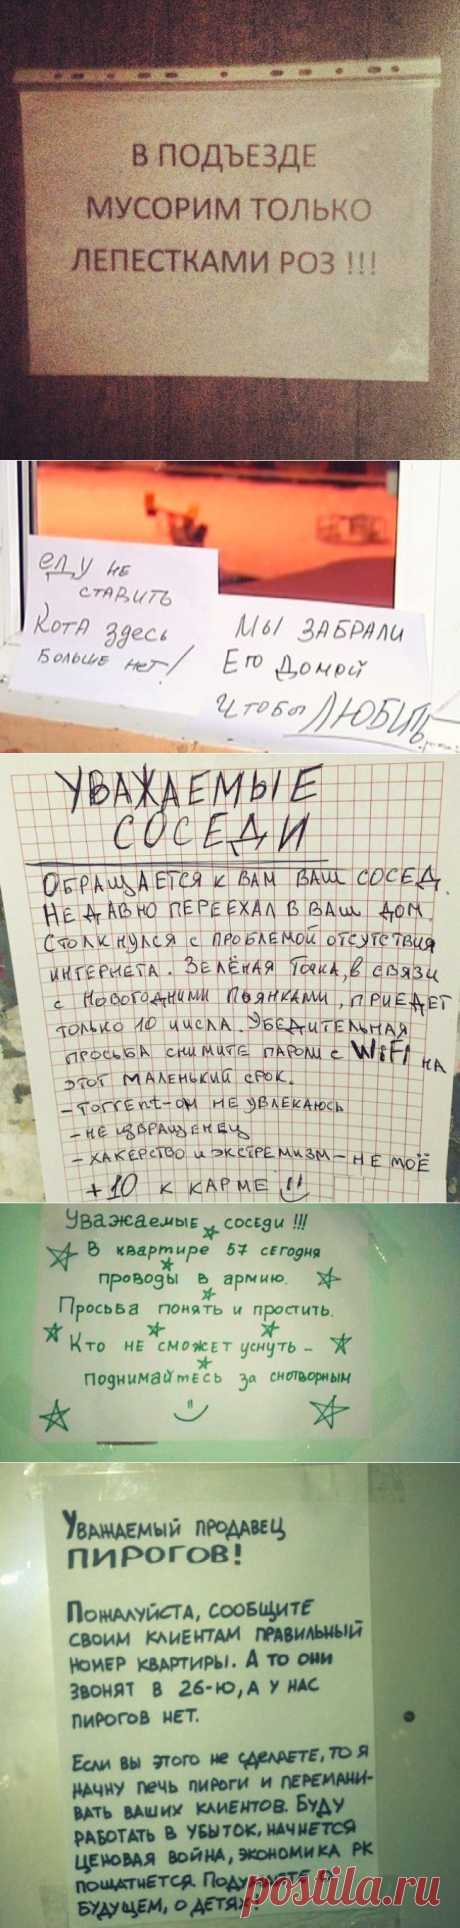 В ПОДЪЕЗДЕ
МУСОРИМ ТОЛЬКО
ЛЕПЕСТКАМИ РОЗ !!!
еду не
ставить
Кота здесь
больше нет!
Мы забрали
Его домой
чтобы ЛЮБИТЬ
УВАЖАЕМЫЕ
СОСЕДИ
ОБРАЩАЕТСЯ К ВАМ ВАШ СОСЕД.
НЕДАВНО ПЕРЕЕХАЛ В ВАШ ДОМ.
СТОЛКНУЛСЯ С ПРОБЛЕМОЙ ОТСУТСТВИЯ
ИНТЕРНЕТА. ЗЕЛЁНАЯ ТОЧКА, В СВЯЗИ
С НОВОГОДНИМИ ПЬЯНКАМИ, ПРИЕДЕТ
ТОЛЬКО 10 ЧИСЛА. УБЕДИТЕЛЬНАЯ
ПРОСЬБА СНИМИТЕ ПАРОЛИ С WiFi НА
ЭТОТ МАЛЕНЬКИЙ СРОК.
- TORRENT-ОМ НЕ УВЛЕКАЮСЬ
- НЕ ИЗВРАЩЕНЕЦ
- ХАКЕРСТВО И ЭКСТРЕМИЗМ - НЕ МОЁ
+10 К КАРМЕ
Уважаемые соседи !!!
В квартире 57 сегодня
проводы в армию.
Просьба понять и простить.
Кто не сможет уснуть -
поднимайтесь за снотворным
Уважаемый продавец
ПИРОГОВ!
Пожалуйста, сообщите
своим клиентам правильный
номер квартиры. А то они
звонят в 26-ю, а у нас
пирогов нет.
Если вы этого не сделаете, то я
начну печь пироги и перемани-
вать ваших клиентов. Буду
работать в убыток, начнется
ценовая война, экономика РК
пошатнется. Подумайте о
будущем, о детях!
postila.ru